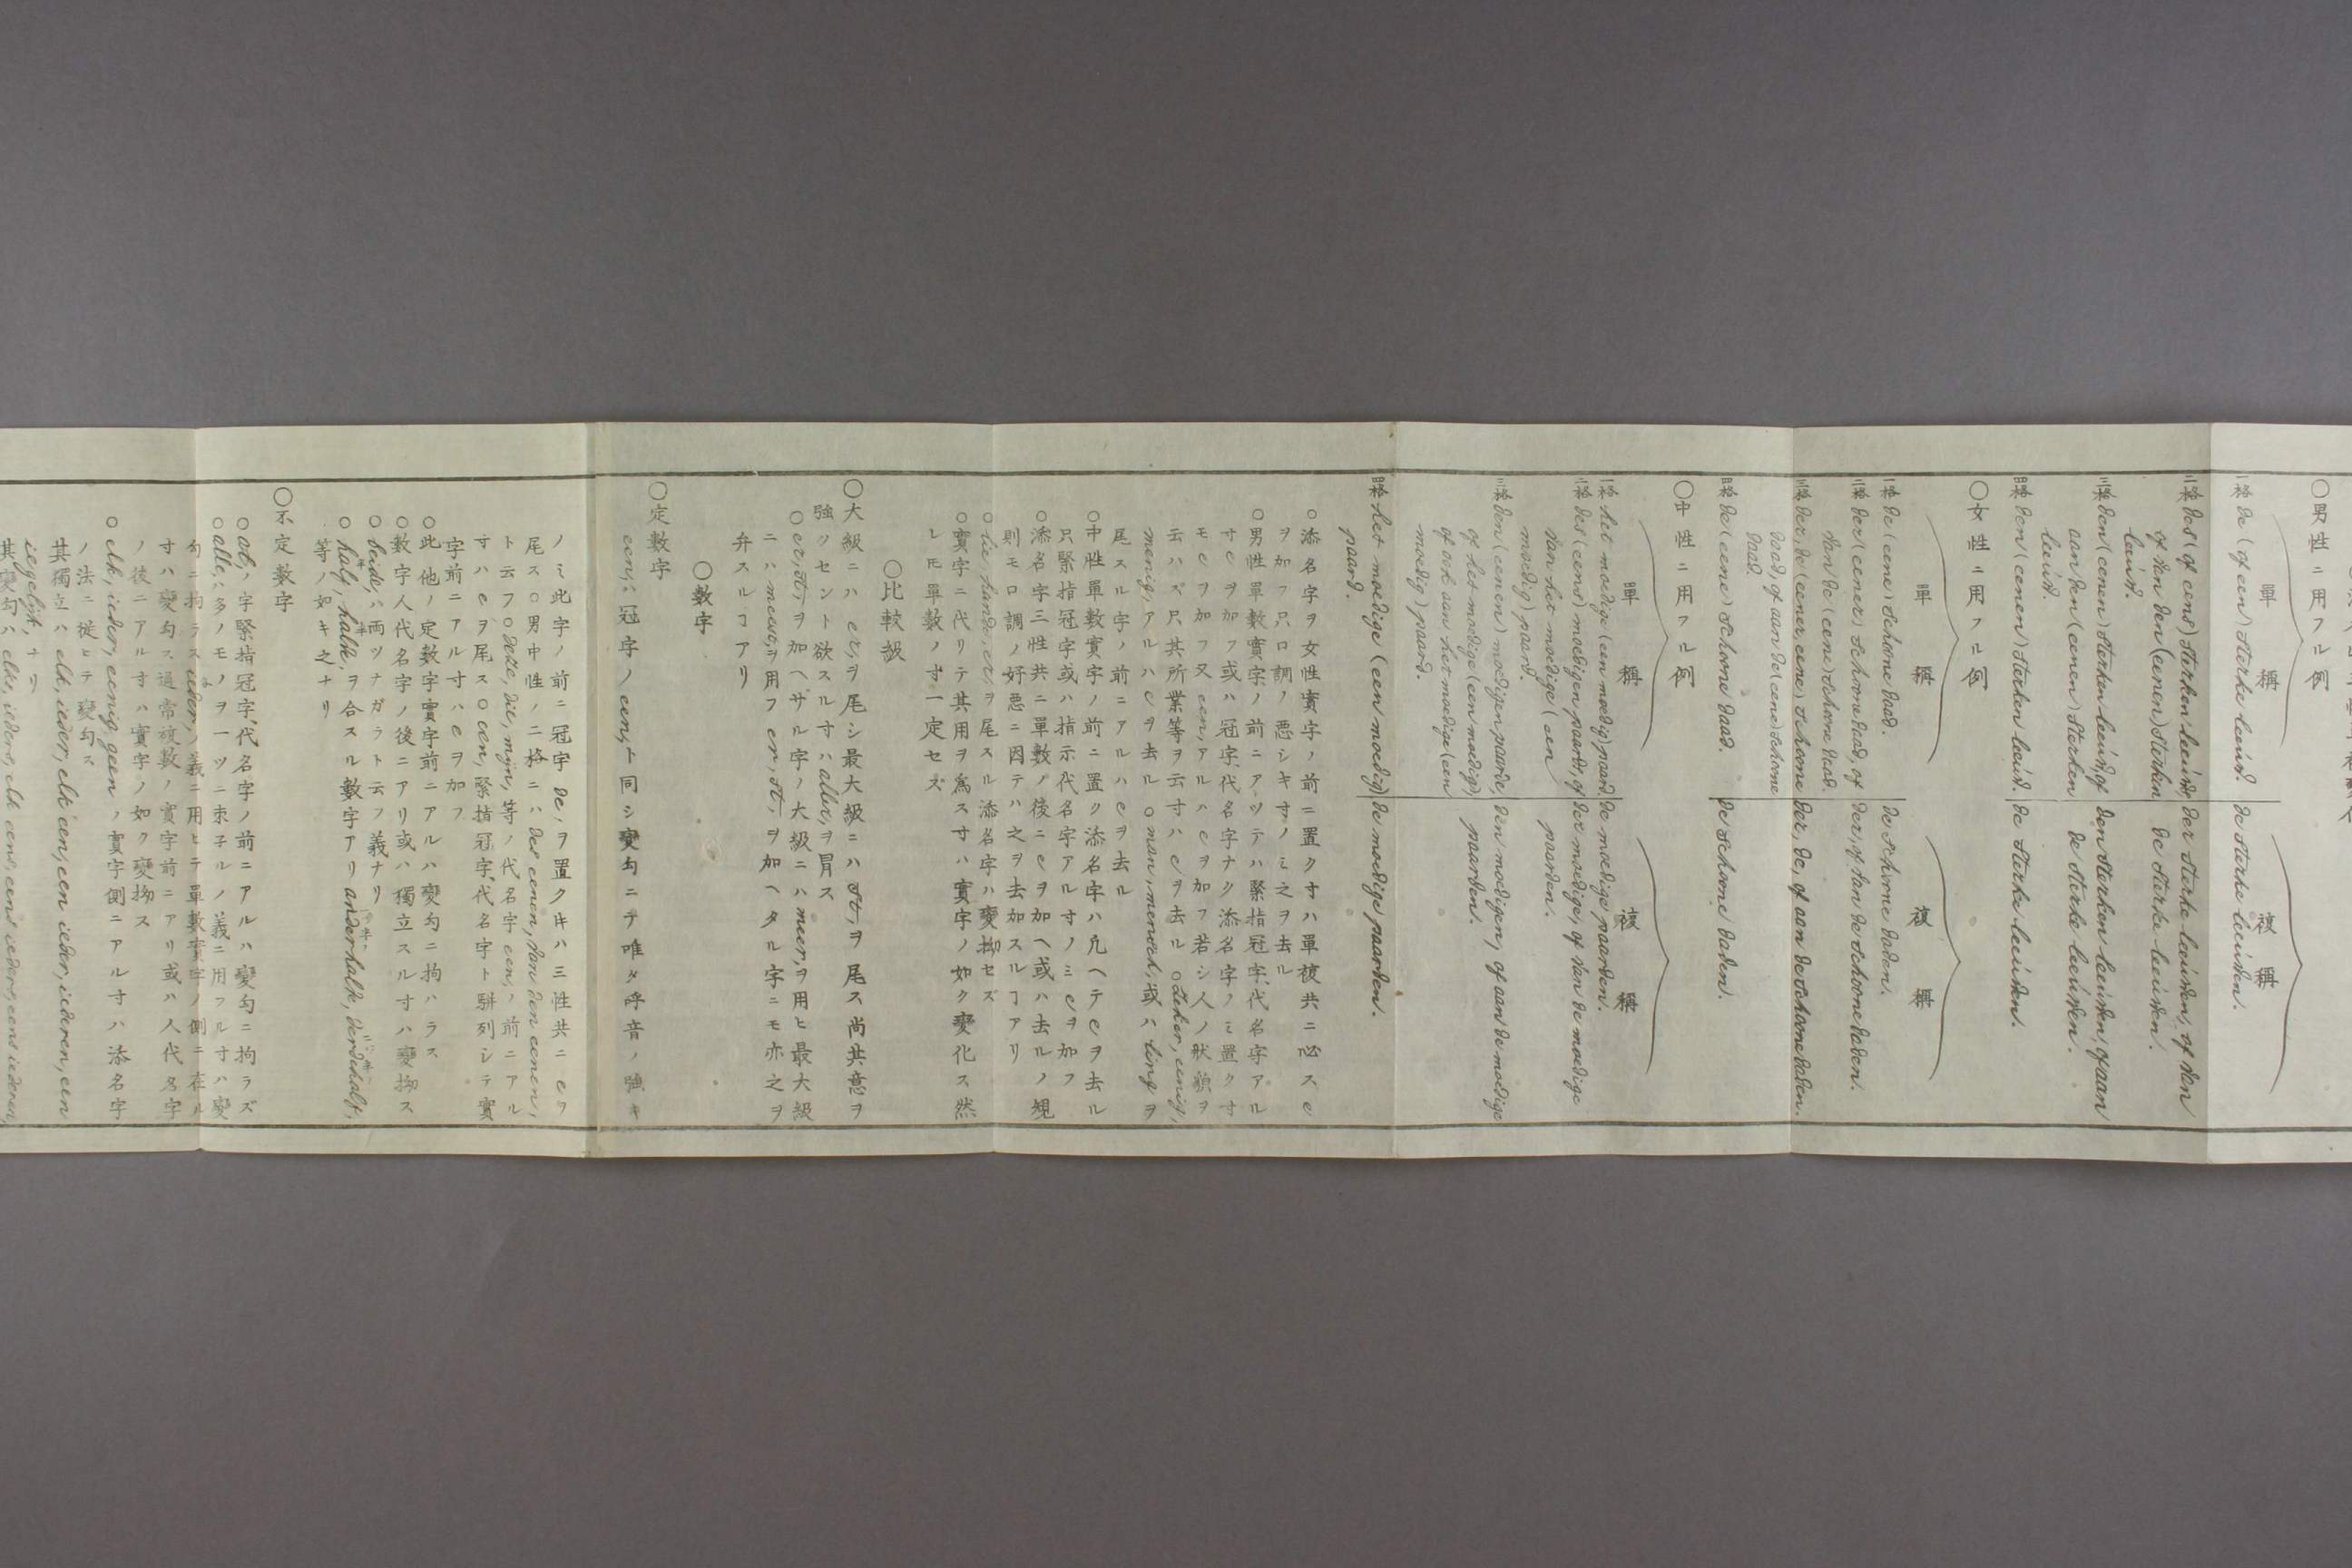 ○男性ニ用フル例
單稱
複稱
一格 de (of een) sterke leeuw.
de sterke leeuwen.
二格 des (of eens) sterken leeuws,
of van den (eenen) sterken
leeuw.
der sterke leeuwen, of van
de sterke leeuwen.
三格 den (eenen) sterken leeuw, of
aan den (eenen) sterken
leeuw.
den sterken leeuwen, of aan
de sterke leeuwen.
四格 den (eenen) sterken leeuw.
de sterke leeuwen.
○女性ニ用フル例
單稱
複稱
一格 de (eene) schoone daad.
de schoone daden.
二格 der (eener) schoone daad, of
van de (eene) schoone daad.
der, of van de schoone daden.
三格 der, de (eener, eene) schoone
daad, of aan de (eene) schoone
daad.
der, de, of aan de schoone daden.
四格 de (eene) schoone daad.
de schoone daden.
○中性ニ用フル例
單稱
複稱
一格 het moedige (een moedig) paard.
de moedige paarden.
二格 des (eens) moedigen paards, of
van het moedige (een
moedig) paard.
der moedige, of van de moedige
paarden.
三格 den (eenen) moedigen paarde,
of het moedige (een moedig)
of ook aan het moedige (een
moedig) paard.
den moedigen, of aan de moedige
paarden.
四格 het moedige (een moedig)
paard.
de moedige paarden.
○添名字ヲ女性實字ノ前ニ置クヿハ單複共ニ必ス e
ヲ加フ只口調ノ惡シキ寸ノミ之ヲ去ル
○男性單數實字ノ前ニアツテハ緊指冠字、代名字アル
寸 e ヲ加フ或ハ冠字、代名字ナク添名字ノミ置ク寸
モ e ヲ加フ又 een, アルハ e ヲ加フ若シ人ノ狀貌ヲ
云ハズ只其所業等ヲ云寸ハ e ヲ去ル ○zeker, eenig,
menig, アルハ e ヲ去ル ○man, mensch, 或ハ ling ヲ
尾スル字ノ前ニアルハ e ヲ去ル
○中性單數實字ノ前ニ置ク添名字ハ凡ヘテ e ヲ去ル
只緊指冠字或ハ指示代名字アル寸ノミ e ヲ加フ
○添名字三性共ニ單數ノ後ニ e ヲ加ヘ或ハ去ルノ規
則モ口調ノ好惡ニ因テハ之ヲ去加スルヿアリ
○lie, hande, er, ヲ尾スル添名字ハ變拗セズ
○實字ニ代リテ其用ヲ爲ス寸ハ實字ノ如ク變化ス然
レ𪜈單數ノ寸一定セズ
○比較級
○大級ニハ er, ヲ尾シ最大級ニハ st, ヲ尾ス尚共意ヲ
強クセント欲スル寸ハ aller, ヲ冐ス
○er, st, ヲ加ヘザル字ノ大級ニハ meer, ヲ用ヒ最大級
ニハ meest, ヲ用フ er, st, ヲ加ヘタル字ニモ亦之ヲ
弁スルヿアリ
○數字
○定數字
een, ハ冠字ノ een, ト同シ變勾ニテ唯タ呼音ノ強キ
ノミ此字ノ前ニ冠字 de, ヲ置ク𪜈ハ三性共ニ e ヲ
尾ス○男中性ノ二格ニハ des eenen, van den eenen,
ト云フ○deze, die, mijn, 等ノ代名字 een, ノ前ニアル
寸ハ e ヲ尾ス○een, 緊指冠字、代名字ト駢列シテ實
字前ニアル寸ハ e ヲ加フ
○此他ノ定數字實字前ニアルハ變勾ニ拘ハラス
○數字人代名字ノ後ニアリ或ハ獨立スル寸ハ變拗ス
○beide, ハ兩ツナガラト云フ義ナリ
○half, halve, ヲ合スル數字アリ anderhalf, derdehalf,
等ノ如キ之ナリ
○不定數字
○al, ノ字緊指冠字、代名字ノ前ニアルハ變勾ニ拘ラズ
○alle, ハ多ノモノヲ一ツニ束子ルノ義ニ用フル寸ハ變
勾ニ拘ラス ieder, ノ義ニ用ヒテ單數實字ノ側ニ在ル
寸ハ變勾ス通常複數ノ實字前ニアリ或ハ人代名字
ノ後ニアル寸ハ實字ノ如ク變拗ス
○elk, ieder, eenig, geen ノ實字側ニアル寸ハ添名字
ノ法ニ從ヒテ變勾ス
其獨立ハ elk, ieder, elk een, een ieder, iederen, een
iegelijk, ナリ
其變勾ハ elks, ieders, elk eens, eens ieders, eens iederen,